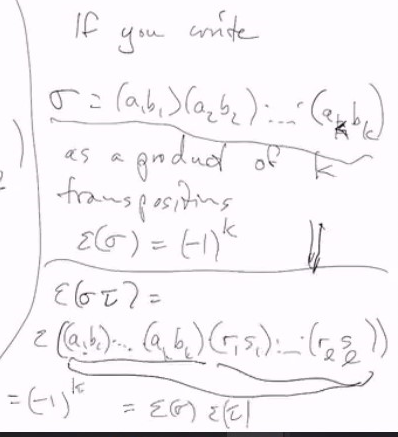 If you write
σ = (a₁b₁)(a₂b₂)...(aₖbₖ)
as a product of k
transpositins
ε(σ) = (-1)ᵏ ⇓
ε(στ) =
ε((a₁b₁)...(aₖbₖ)(r₁s₁)...(rₗsₗ))
= (-1)ᵏ = ε(σ) ε(τ)